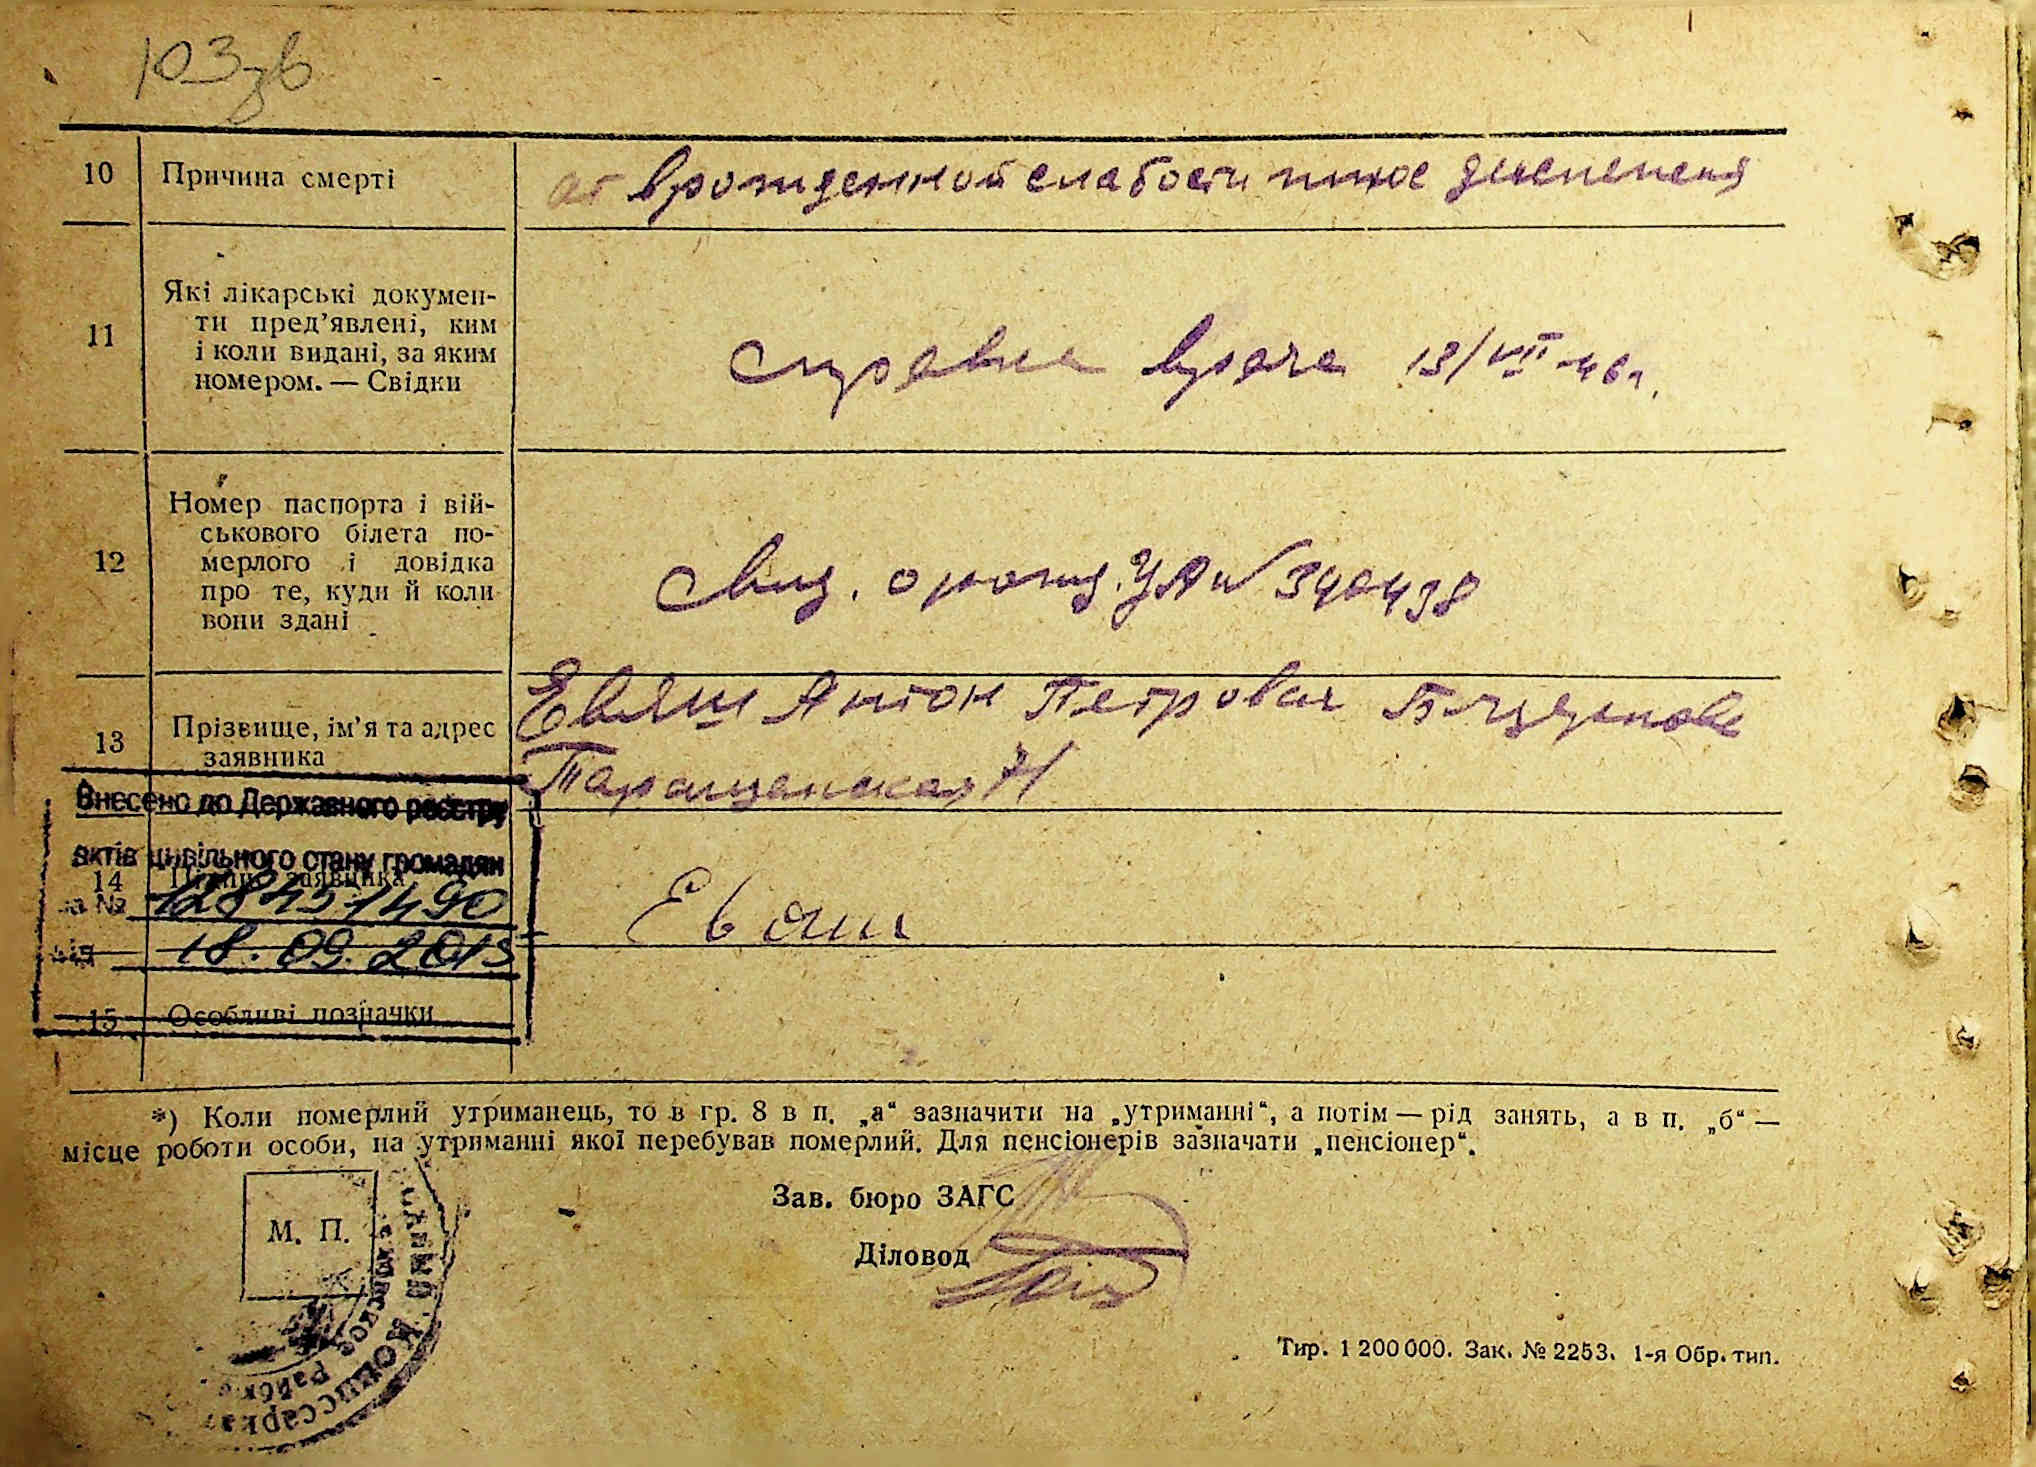 103зв
10 Причина смерті
от врожденной слабости плюс диспепсия
11 Які лікарські докумен-
ти пред'явлені, ким
і коли видані, за яким
номером. — Свідки
справка врача 13/VII-46г.
12 Номер паспорта і вій-
ськового білета по-
мерлого і довідка
про те, куди й коли
вони здані
свид. о рожд. УА №
13 Прізвище, ім'я та адрес
заявника
Еваш Антон Петрович
Таращанская 71
Внесено до Державного реєстру
актів цивільного стану громадян
14 Підпис заявника
за №
18.09.2013
Еваш
15 Особливі позначки
*) Коли померлий утриманець, то в гр. 8 в п. „а“ зазначити на „утриманні“, а потім — рід занять, а в п. „б“ —
місце роботи особи, на утриманні якої перебував померлий. Для пенсіонерів зазначати „пенсіонер“.
Зав. бюро ЗАГС
М. П.
Діловод
Тир. 1 200 000. Зак. № 2253. 1-я Обр. тип.